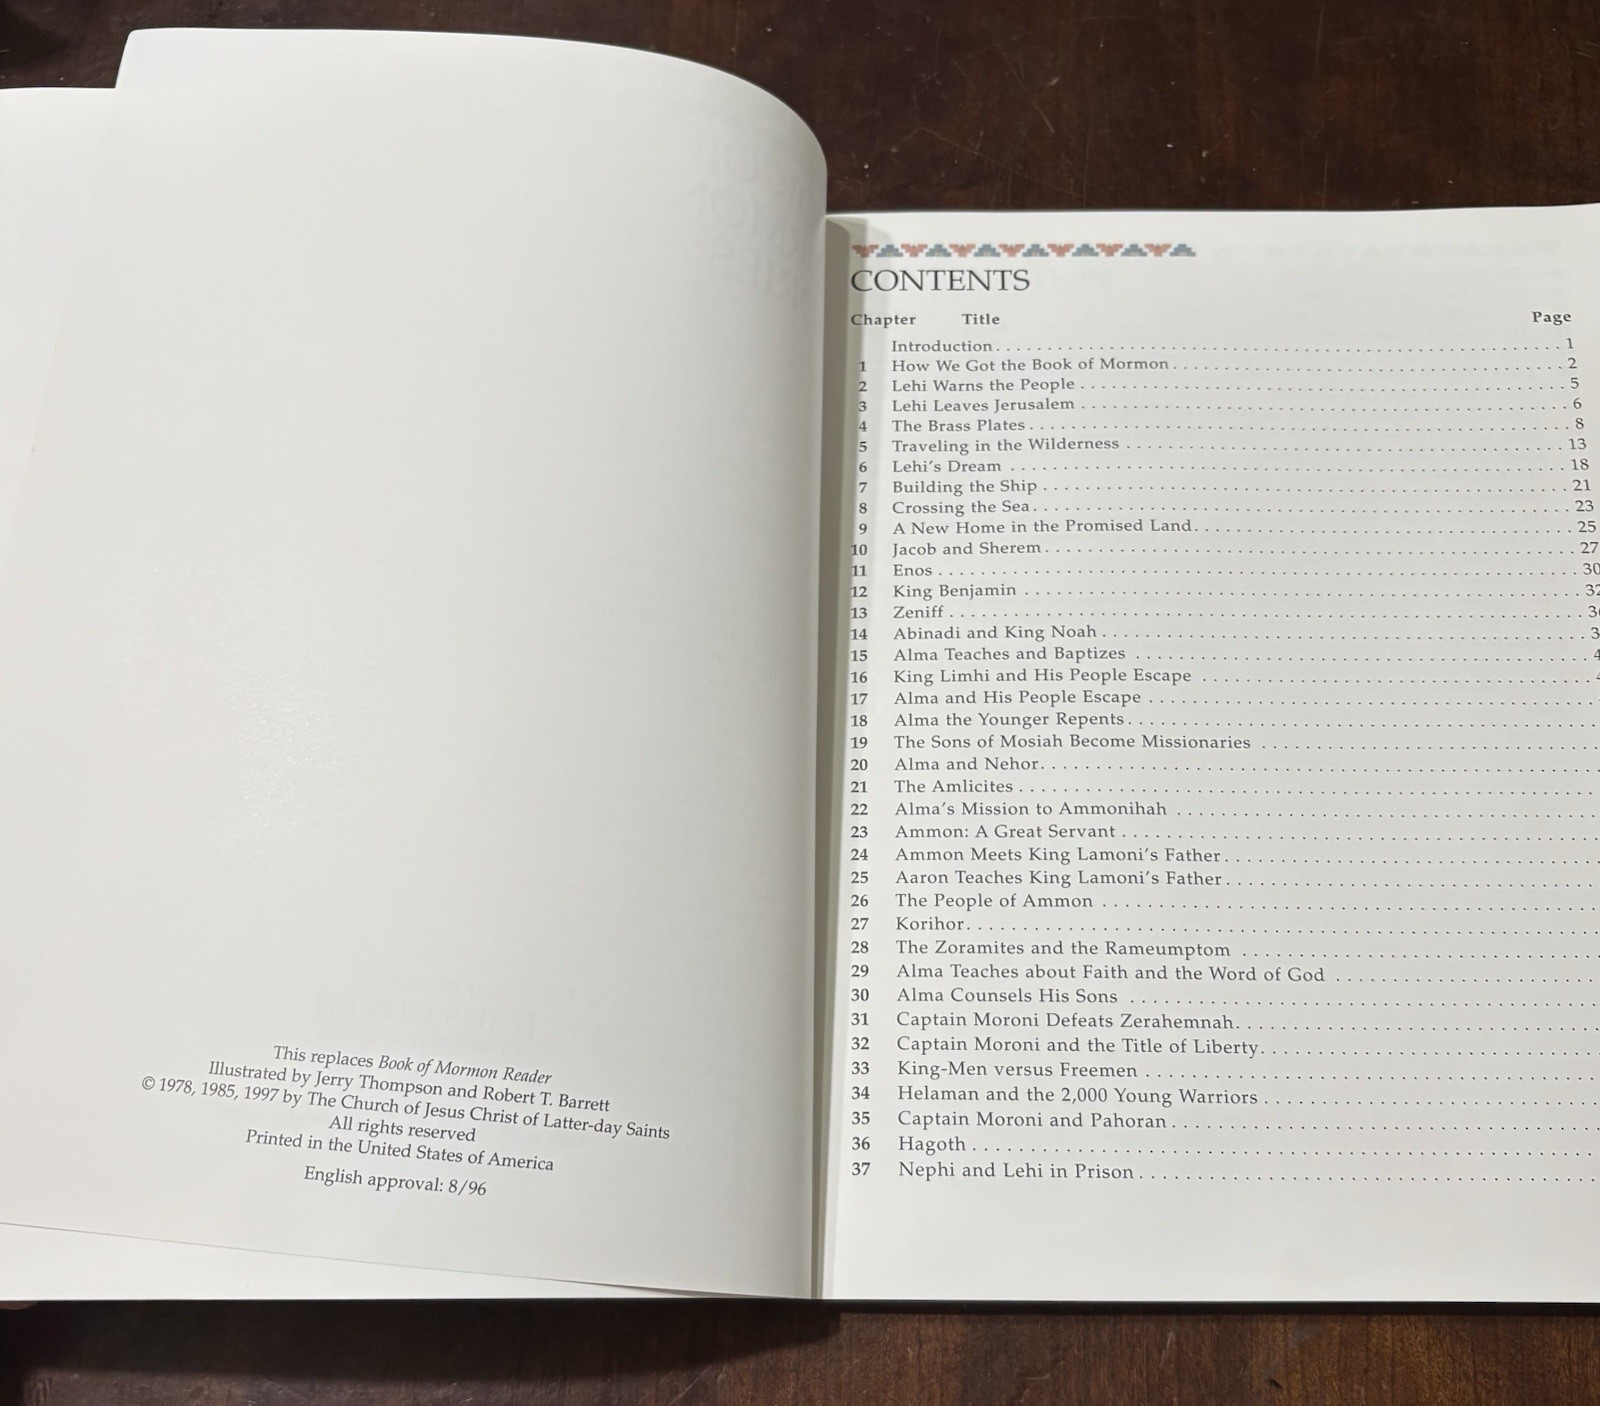 This replaces Book of Mormon Reader
Illustrated by Jerry Thompson and Robert T. Barrett
© 1978, 1985, 1997 by The Church of Jesus Christ of Latter-day Saints
All rights reserved
Printed in the United States of America
English approval: 8/96
CONTENTS
Chapter Title Page
Introduction 1
1 How We Got the Book of Mormon 2
2 Lehi Warns the People 5
3 Lehi Leaves Jerusalem 6
4 The Brass Plates 8
5 Traveling in the Wilderness 13
6 Lehi's Dream 18
7 Building the Ship 21
8 Crossing the Sea 23
9 A New Home in the Promised Land 25
10 Jacob and Sherem 27
11 Enos 30
12 King Benjamin 32
13 Zeniff
14 Abinadi and King Noah
15 Alma Teaches and Baptizes
16 King Limhi and His People Escape
17 Alma and His People Escape
18 Alma the Younger Repents
19 The Sons of Mosiah Become Missionaries
20 Alma and Nehor
21 The Amlicites
22 Alma's Mission to Ammonihah
23 Ammon: A Great Servant
24 Ammon Meets King Lamoni's Father
25 Aaron Teaches King Lamoni's Father
26 The People of Ammon
27 Korihor
28 The Zoramites and the Rameumptom
29 Alma Teaches about Faith and the Word of God
30 Alma Counsels His Sons
31 Captain Moroni Defeats Zerahemnah
32 Captain Moroni and the Title of Liberty
33 King-Men versus Freemen
34 Helaman and the 2,000 Young Warriors
35 Captain Moroni and Pahoran
36 Hagoth
37 Nephi and Lehi in Prison